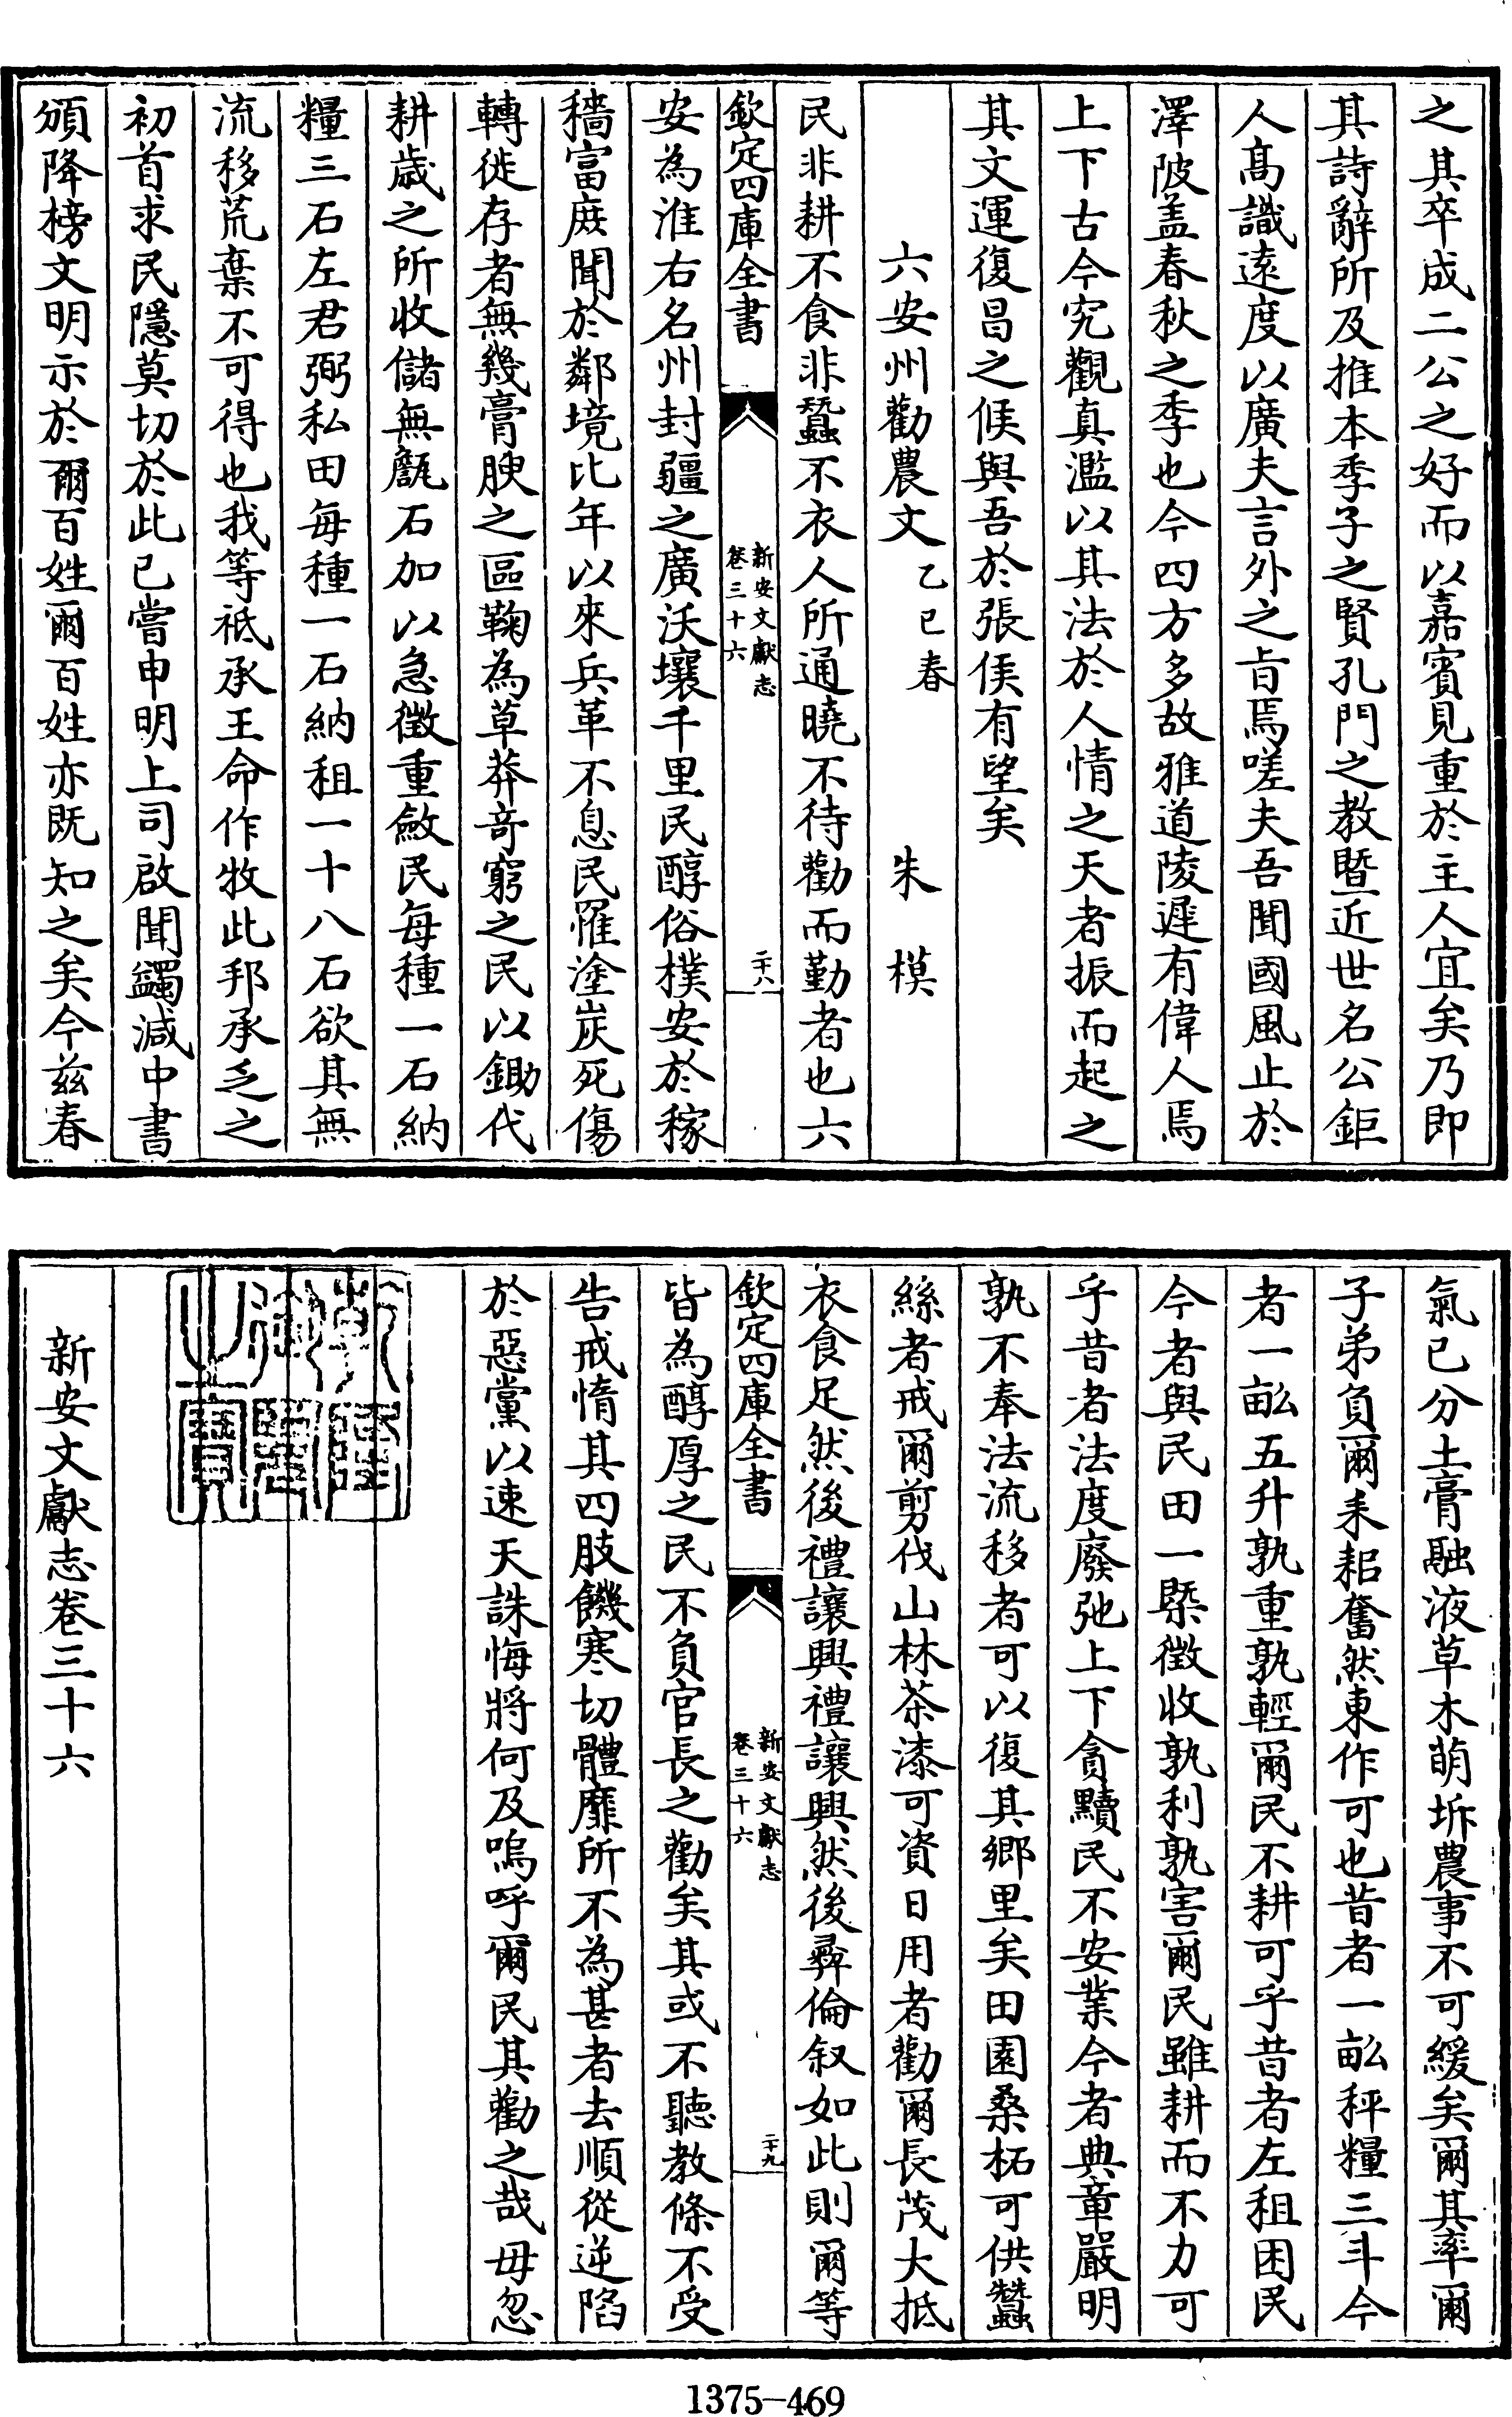 之其卒成二公之好而以嘉賓見重於主人宜矣乃即
其詩辭所及推本季子之賢孔門之教暨近世名公鉅
人髙識遠度以廣夫言外之㫖焉嗟夫吾聞國風止於
澤陂盖春秋之季也今四方多故雅道陵遲有偉人焉
上下古今究觀真濫以其法於人情之天者振而起之
其文運復昌之候與吾於張侯有望矣
六安州勸農文 乙巳春 朱模
民非耕不食非蠶不衣人所通曉不待勸而勤者也六
欽定四庫全書
新安文獻志
卷三十六
二十八
安為淮右名州封疆之廣沃壤千里民醇俗樸安於稼
穡富庶聞於鄰境比年以來兵革不息民罹塗炭死傷
轉徙存者無幾膏腴之區鞠為草莽竒窮之民以鋤代
耕歳之所收儲無甔石加以急徵重斂民每種一石納
糧三石左君弼私田每種一石納租一十八石欲其無
流移荒棄不可得也我等祗承王命作牧此邦承乏之
初首求民隱莫切於此已嘗申明上司啟聞蠲減中書
頒降榜文明示於爾百姓爾百姓亦既知之矣今兹春
氣已分土膏融液草木萌坼農事不可緩矣爾其率爾
子弟負爾耒耜奮然東作可也昔者一畝秤糧三斗今
者一畝五升孰重孰輕爾民不耕可乎昔者左租困民
今者與民田一槩徵收孰利孰害爾民雖耕而不力可
乎昔者法度廢弛上下貪黷民不安業今者典章嚴明
孰不奉法流移者可以復其鄉里矣田園桑柘可供蠶
絲者戒爾剪伐山林茶漆可資日用者勸爾長茂大抵
衣食足然後禮讓興禮讓興然後彞倫叙如此則爾等
欽定四庫全書
新安文獻志
卷三十六
二十九
皆為醇厚之民不負官長之勸矣其或不聽教條不受
告戒惰其四肢饑寒切體靡所不為甚者去順從逆陷
於惡黨以速天誅悔將何及嗚呼爾民其勸之哉毋忽
新安文獻志卷三十六
1375-469